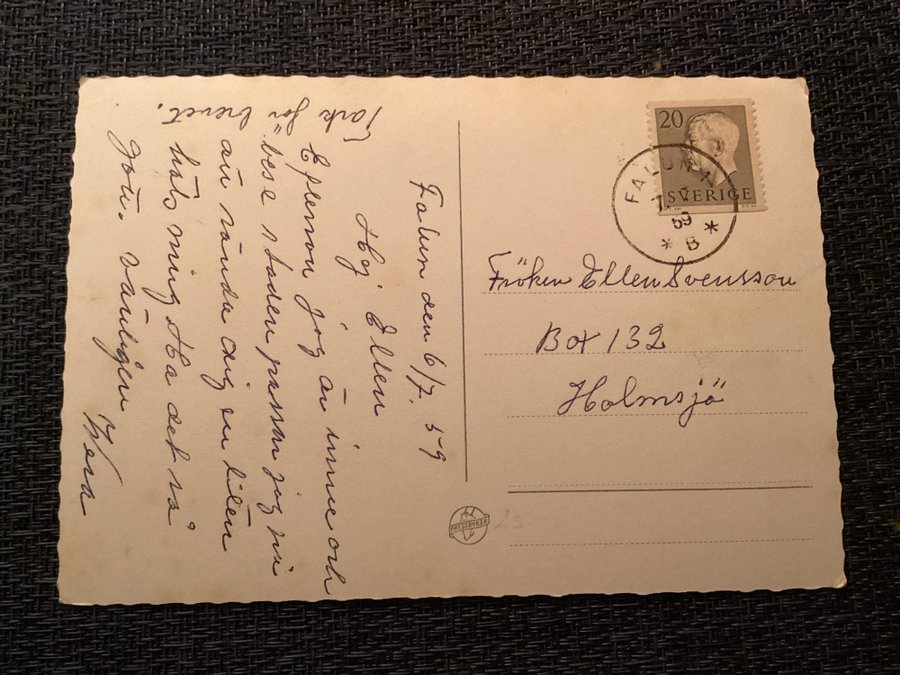 Falun den 6/7. 59
Hej Ellen
Eftersom jag är inne och
bese staden passar jag på
att sända dig en liten
häls ning Ha det så
gott. vänligen Vera
Tack för brevet.
20
SVERIGE
FALUN 1
7
59
* B *
Fröken Ellen Svensson
Box 132
Holmsjö
PRESSBYRÅN
25